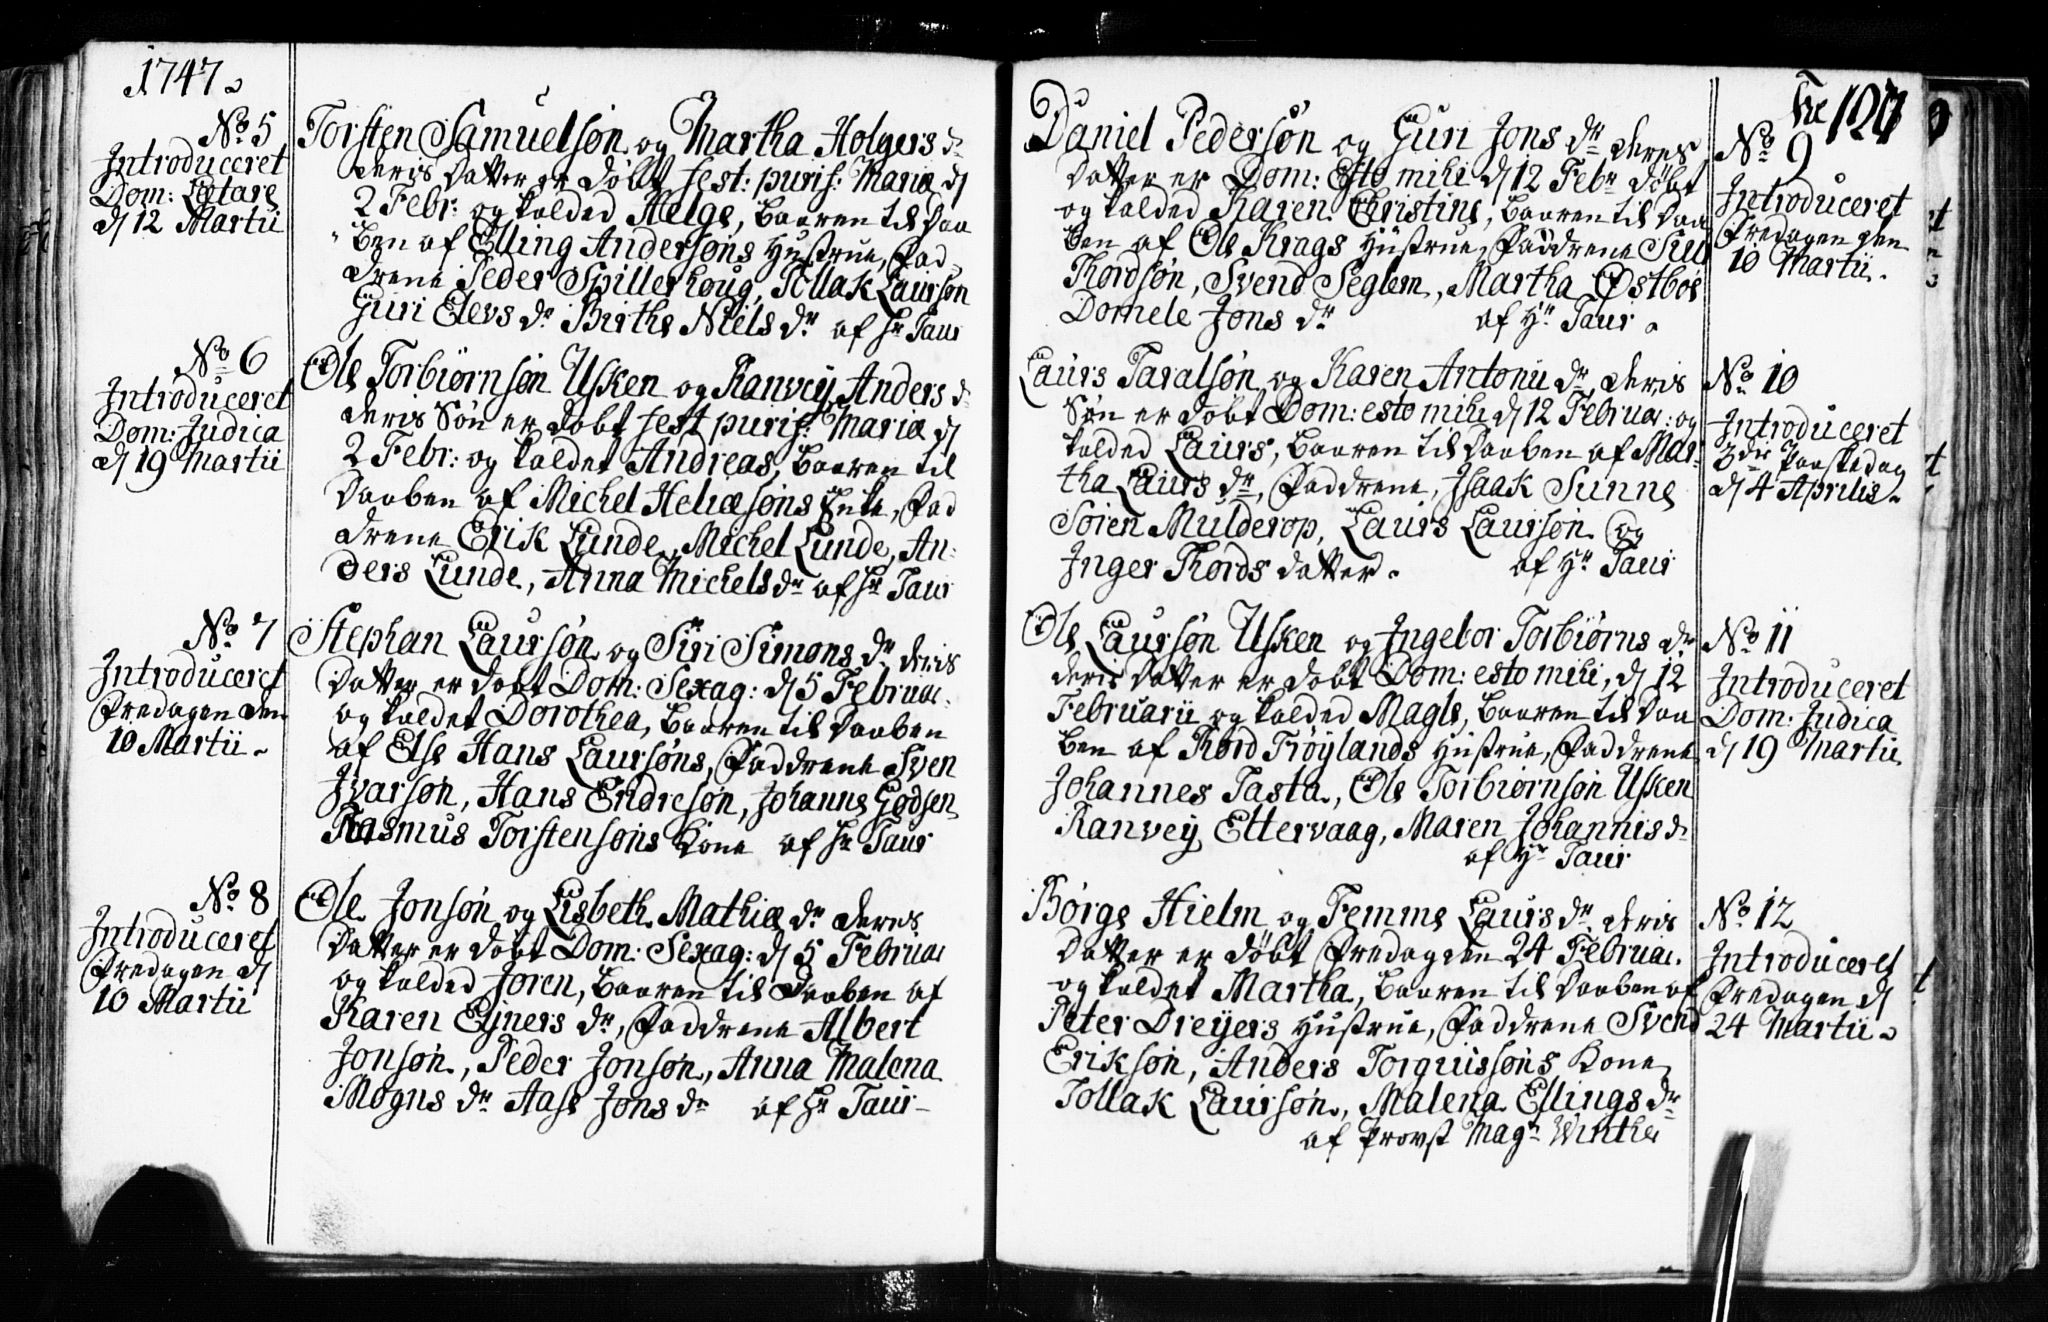 1747.
No 5
Introduceret
Dom: Lætare
d 12 Martii
Torsten Samuelsøn og Martha Holgers dr
deris datter er døbt fest: purif: Mariæ d
2 Febr: og kalded Helge, baaren til daa
ben af Elling Andersøns Hustrue, Fad
drene Peder Spillerhoug, Tollak Laursøn
Guri Elevs dr Birthe Niels dr af Hr Taur
No 6
Introduceret
Dom: Judica
d 19 Martii
Ole Torbiørnsøn Usken og Ranvey Anders dr
deris Søn er døbt fest purif: Mariæ d
2 Febr: og kaldet Andreas, baaren til
daaben af Michel Heliæsøns Enke, Fad
drene Erik Lunde, Michel Lunde, An:
ders Lunde, Anna Michels dr af Hr Taur
No 7
Introduceret
Fredagen den
10 Martii.
Stephan Laursøn og Siri Simons dr deris
datter er døbt Dom: Sexag: d 5 Februar.
og kaldet Dorothea, baaren til daaben
af Else Hans Laursøns, Faddrene Sven
Jvarsøn, Hans Endresøn, Johanne Godsen
Rasmus Torstensøns Kone af Hr Taur
No 8
Introduceret
Fredagen d
10 Martii
Ole Jonsøn og Lisbeth Mathiæ dr deres
datter er døbt Dom: Sexag: d 5 Februar
og kalded Joren, baaren til daaben af
Karen Ejners dr, Faddrene Albert
Jonsøn, Peder Jonsøn, Anna Malena
Mogns dr Aase Jons dr af Hr Taur
127
Daniel Pedersøn og Guri Jons dr deres
datter er Dom: Esto mihi d 12 Febr døbt
og kalded Karen Christine, baaren til daa
ben af Ole Krags Hustrue, Faddrene Siu
Thordsøn, Svend Seglem, Martha Østbøe
Domele Jons dr af Hr Taur.
No 9
Introduceret
Fredagen den
10 Martii.
Laurs Taralsøn og Karen Antonii dr, deris
Søn er døbt Dom: esto mihi d 12 Februar: og
kalded Laurs, baaren til daaben af Mar:
tha Laurs dr, Faddrene, Jsaak Sunne
Sören Mulderop, Laurs Laursøn og
Jnger Thords datter. af Hr Taur
No 10
Introduceret
3die Paaskedag
d 4 Aprilis.
Ole Laursøn Usken og Jngebor Torbiørns dr
deris datter er døbt Dom: esto mihi, d 12
Februarii og kalded Magle, baaren til daa
ben af Thord Frøylands Hustrue, Faddrene
Johannes Tasta, Ole Torbiørnsøn Usken
Ranvey Ettervaag, Maren Johannis dr
af Hr Taur
No 11
Introduceret
Dom: Judica
d 19 Martii
Børge Hielm og Femme Laurs dr deris
datter er døbt Fredagen 24 Februar.
og kaldet Martha, baaren til daaben af
Peter Dreyers Hustrue, Faddrene Svend
Eriksøn, Anders Torquissøns Kone
Tollak Laursøn, Malena Ellings dr
af Provst Magr Winther
No 12
Introduceret
Fredagen d
24 Martii.